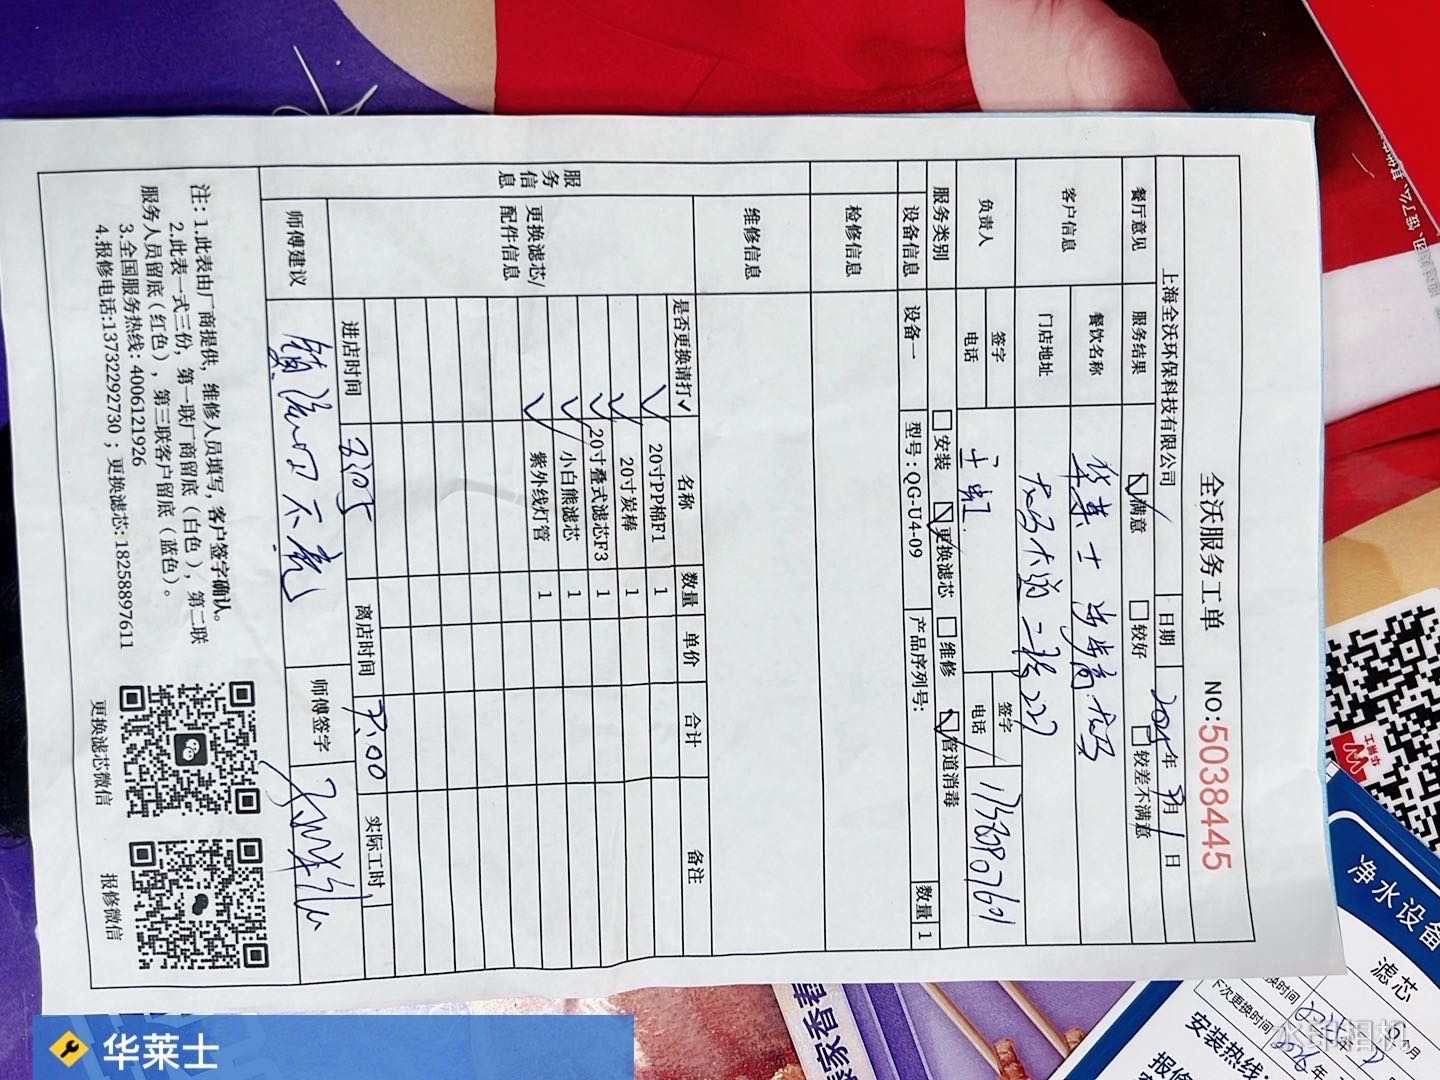 全沃服务工单 NO:5038445
上海全沃环保科技有限公司 日期 2025年 月1日
餐厅意见 服务结果 ☑满意 □较好 □较差不满意
客户信息 餐饮名称 华莱士
门店地址 大道二路227
负责人 签字 签字
电话 王虹 电话
服务类别 □安装 ☑更换滤芯 □维修 ☑管道消毒
设备信息 设备一 型号:QG-U4-09 产品序列号: 数量 1
服务信息
检修信息
维修信息
更换滤芯/配件信息
是否更换请打✓ 名称 数量 单价 合计 备注
✓ 20寸PP棉F1 1
✓ 20寸炭棒 1
✓ 20寸叠式滤芯F3 1
✓ 小白熊滤芯 1
✓ 紫外线灯管 1
进店时间 离店时间 7:00 实际工时
师傅建议 不亮 师傅签字
注:1.此表由厂商提供,维修人员填写,客户签字确认。
2.此表一式三份,第一联厂商留底(白色),第二联
服务人员留底(红色),第三联客户留底(蓝色)。
3.全国服务热线:4006121926
4.报修电话:13732292730;更换滤芯:18258897611
更换滤芯微信
报修微信
华莱士
净水设备
滤芯
换时间
下次更换时间
安装热线:
报修
水印相机